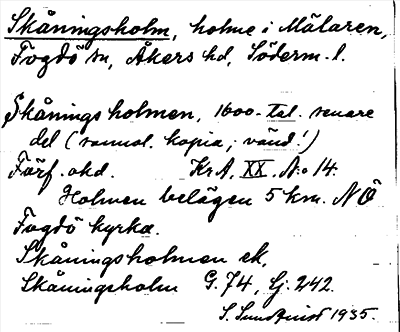 Skåningsholm, holme i Mälaren,
Fogdö sn, Åkers hd, Söderm. l.
Skånings holmen, 1600-tal. senare
del (sannol. kopia; vänd!)
Förf. okd. Kr A. XX. N:o 14.
Holmen belägen 5 km. NÖ
Fogdö kyrka.
Skåningsholmen ek,
Skåningsholm G. 74, Gj. 242.
S. Sundquist 1935.